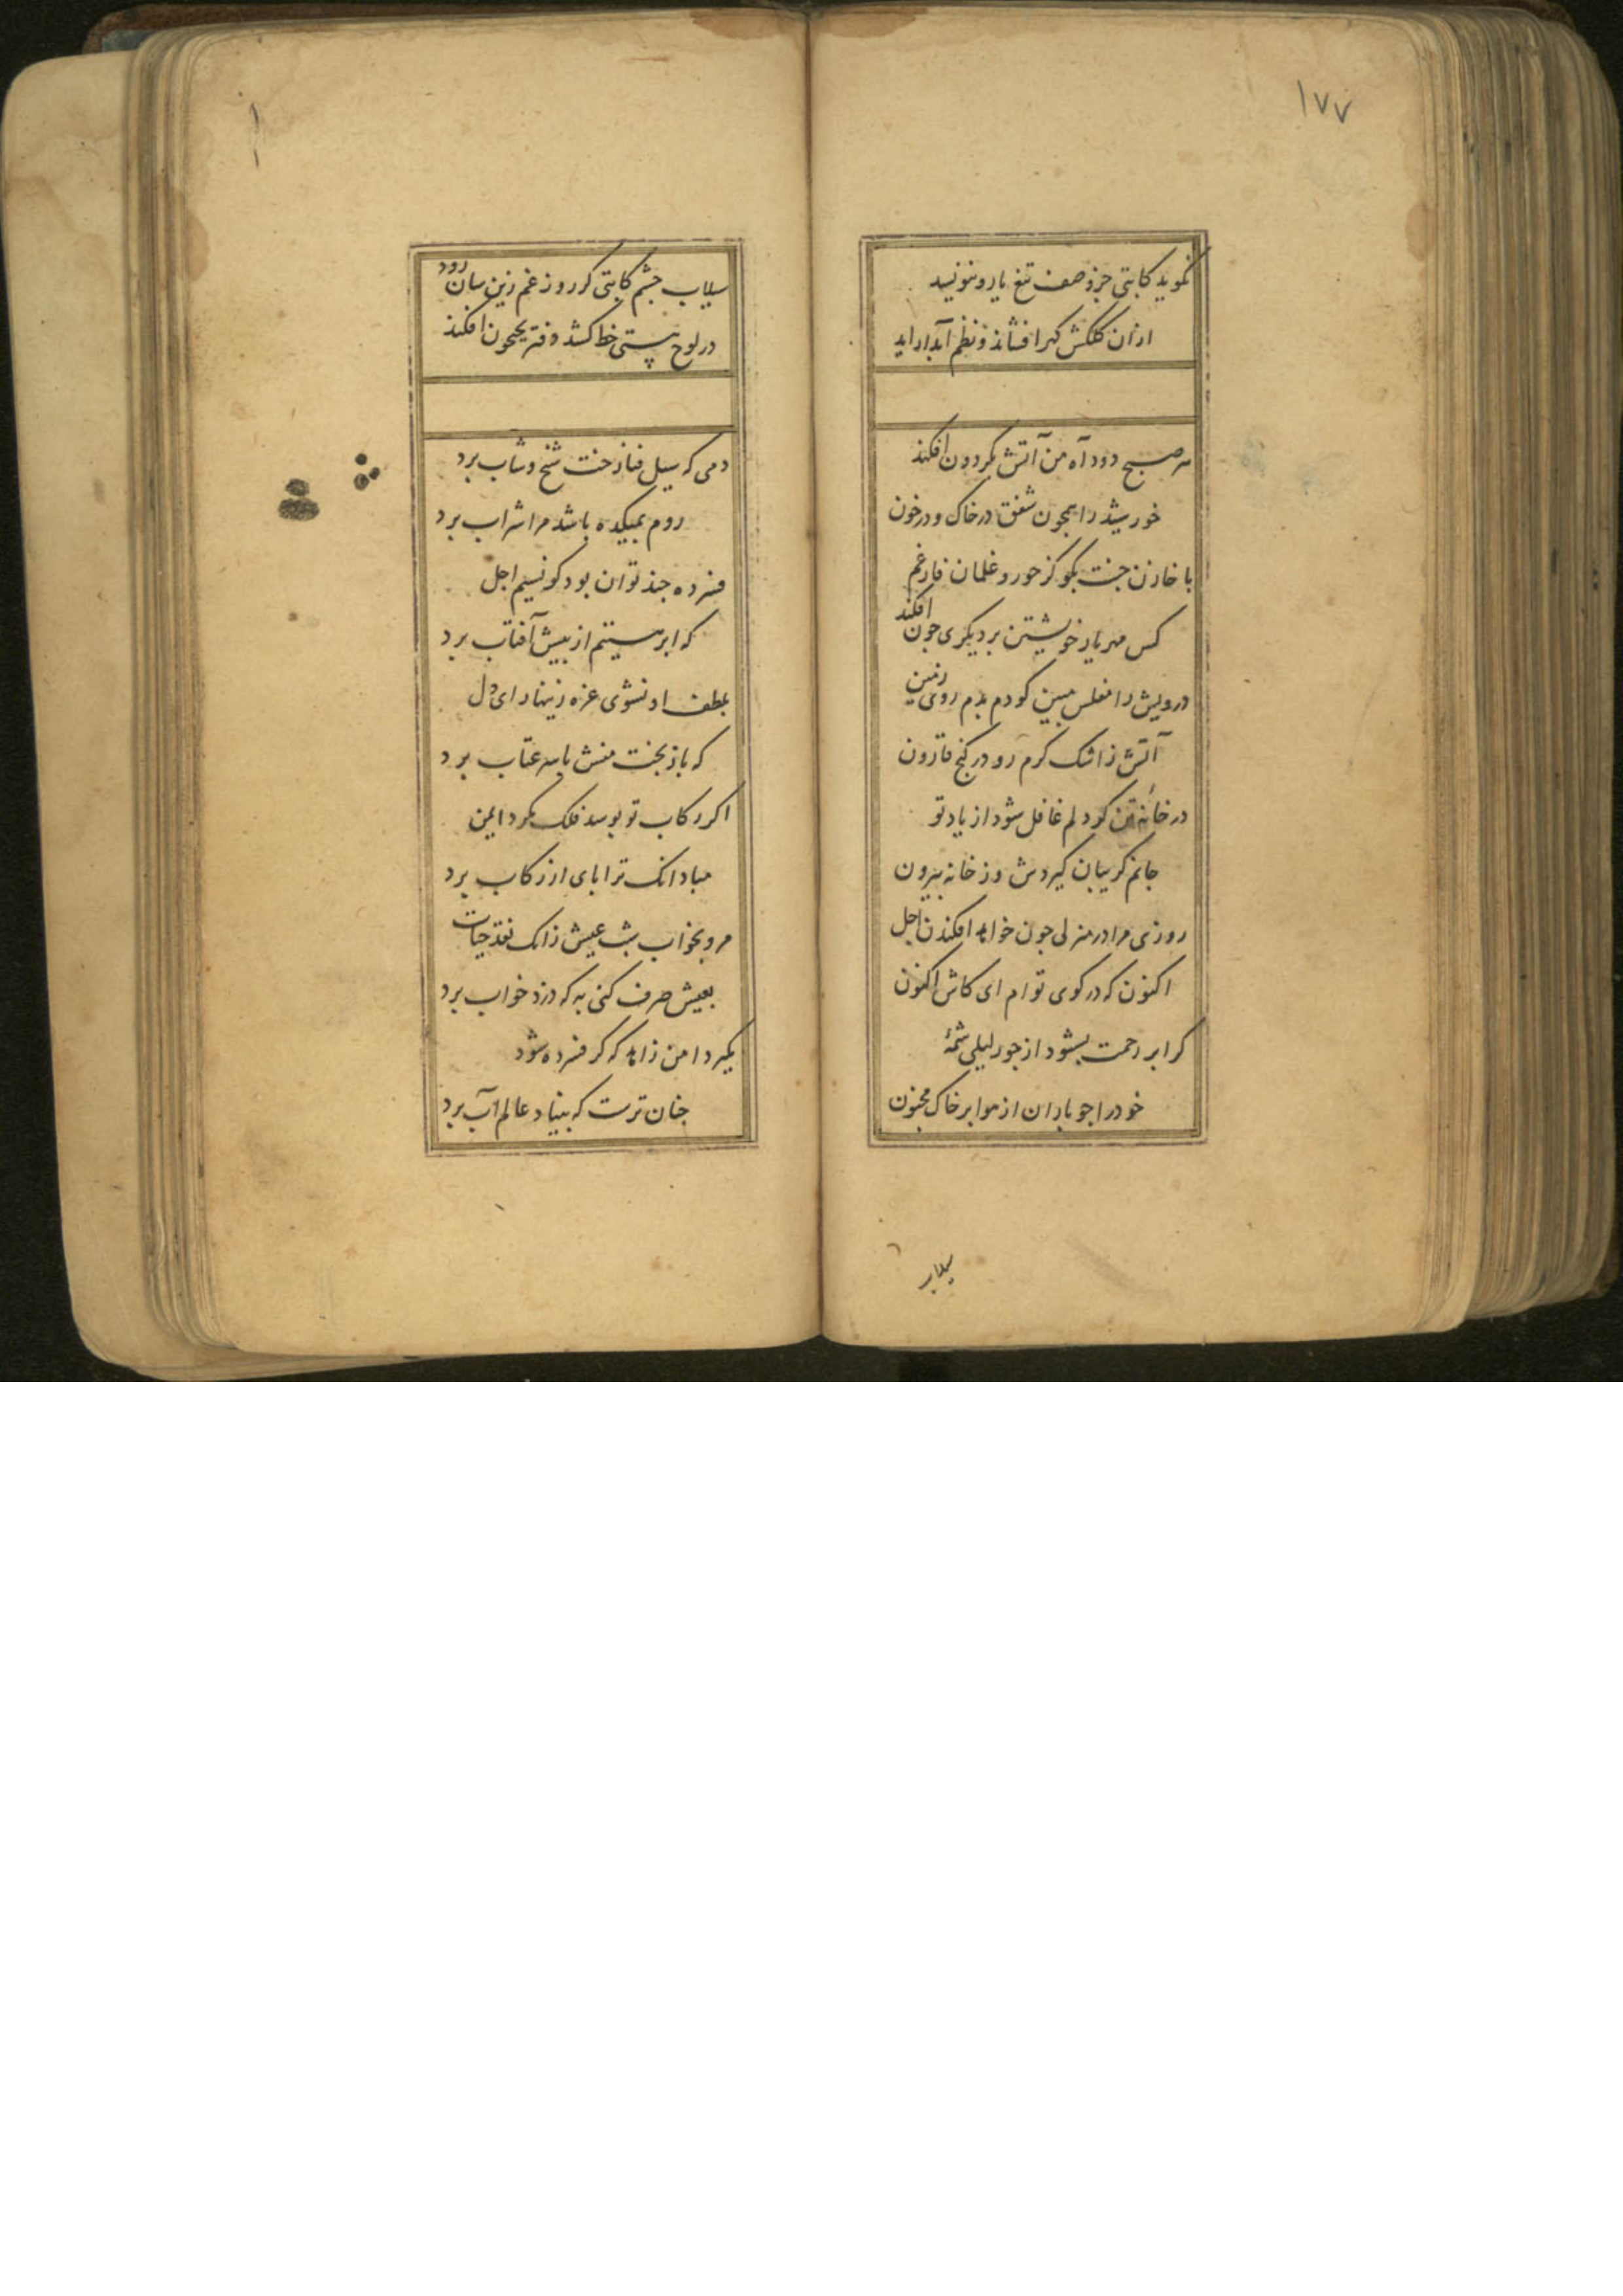 ۱۷۷
نگوید کاتبی جز وصف تیغ یار و ننویسد
ازان کلکش گهر افشاند و نظم آبدار اید
هر صبح دود آه من آتش بگردون افکند
خورشید را همچون شفق در خاک و در خون
با خازن جنت بگو کز حور و غلمان فارغم
افکند
کس مهر یار خویشتن بر دیگری چون
درویش را مفلس مبین کو دم بدم روی زمین
آتش ز اشک کرم رو در کنج قارون
در خانه تن کر دلم غافل شود از یاد تو
جانم کریبان کیردش وز خانه بیرون
روزی مرا در منزلی جون خواهد افکندن اجل
اکنون که در کوی توام ای کاش اکنون
کر ابر رحمت بشنود از جور لیلی شمهٔ
خود را جو باران از هوا بر خاک مجنون
سیلاب
سیلاب جشم کاتبی کر روز غم زین سان رود
در لوح هستی خط کشد دفتر بجیحون افکند
دمی که سیل فنا رخت شیخ و شاب برد
روم بمیکده باشد مرا شراب برد
فسرده جند توان بود کو نسیم اجل
که ابر هستیم از پیش آفتاب برد
بلطف او نشوی غره زینهار ای دل
که باز بخت منش با سر عتاب برد
اکر رکاب تو بوسد فلک مکرد ایمن
مبادا نک ترا بای از رکاب برد
مرو بخواب شب عیش زانک نقد حیات
بعیش صرف کنی به که دزد خواب برد
بکیر دامن زاهد که کر فسرده شود
جنان ترست که بنیاد عالم آب برد